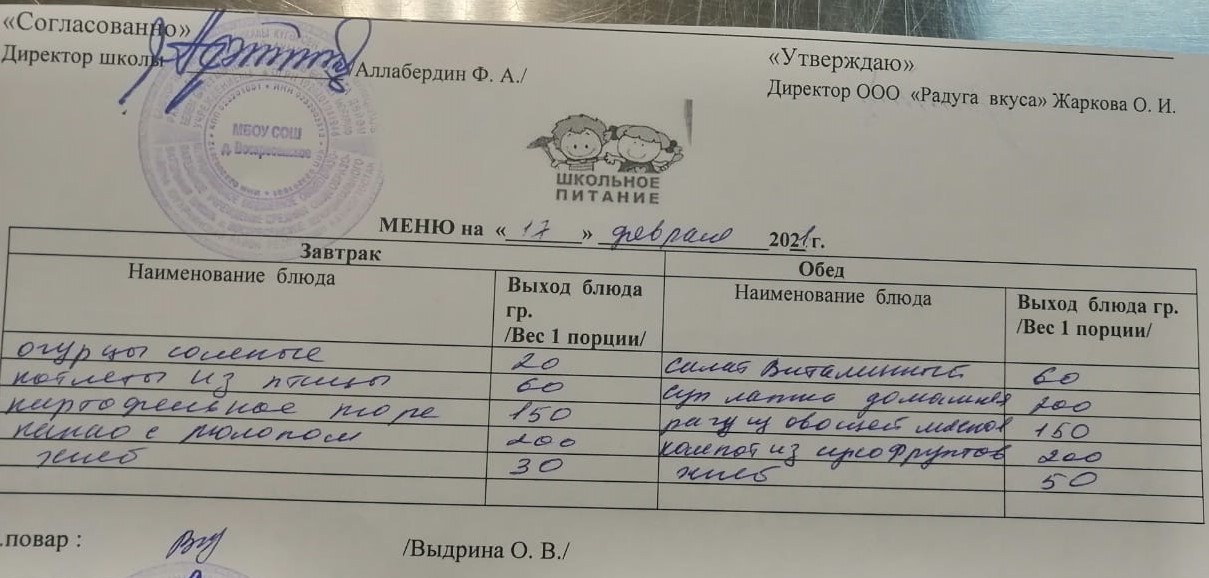 «Согласованно»
Директор школы /Аллабердин Ф. А./
«Утверждаю»
Директор ООО «Радуга вкуса» Жаркова О. И.
МБОУ СОШ
д. Воскресенское
ШКОЛЬНОЕ
ПИТАНИЕ
МЕНЮ на « 17 » февраля 2021 г.
Завтрак Обед
Наименование блюда Выход блюда гр. /Вес 1 порции/ Наименование блюда Выход блюда гр. /Вес 1 порции/
огурцы соленые 20 салат Витаминный 60
котлеты из птицы 60 суп лапша домашняя 200
картофельное пюре 150 рагу из овощей мясное 150
какао с молоком 200 компот из сухофруктов 200
хлеб 30 хлеб 50
.повар : /Выдрина О. В./